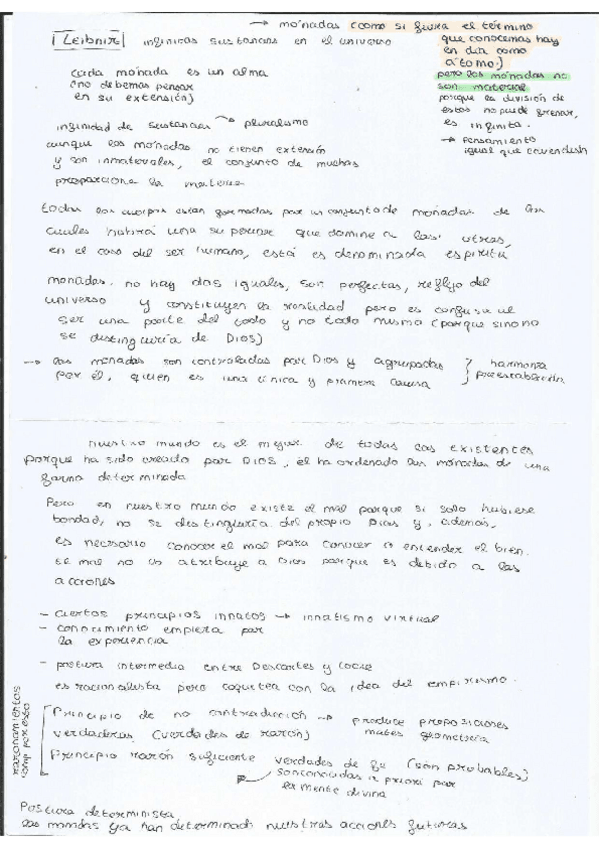 Leibniz infinitas sustancias en el universo
→ mónadas (como si fuera el término
que conocemos hoy
en día como
átomo.)
pero las mónadas no
son material
porque la división de
estos no puede frenar,
es infinita.
→ pensamiento
igual que Cavendish
cada mónada es un alma
(no debemos pensar
en su extensión)
infinidad de sustancias → pluralismo
aunque las mónadas no tienen extensión
y son inmateriales, el conjunto de muchas
proporciona la materia
todos los cuerpos están formados por un conjunto de mónadas de las
cuales habrá una superior que domine a las otras,
en el caso del ser humano, está es denominada espíritu
mónadas: no hay dos iguales, son perfectas, reflejo del
universo y constituyen la realidad pero es confusa al
ser una parte del todo y no todo mismo (porque sino no
se distinguiría de Dios)
→ las mónadas son controladas por Dios y agrupadas
por él, quien es una única y primera causa
} harmonía
preestablecida
nuestro mundo es el mejor de todas las existentes
porque ha sido creado por Dios, él ha ordenado las mónadas de una
forma determinada
Pero en nuestro mundo existe el mal porque si solo hubiese
bondad, no se distinguiría del propio Dios y, además,
es necesario conocer el mal para conocer o entender el bien.
El mal no se atribuye a Dios porque es debido a las
acciones
- ciertos principios innatos → innatismo virtual
- conocimiento empieza por
la experiencia
- postura intermedia entre Descartes y Locke
es racionalista pero coquetea con la idea del empirismo.
razonamientos
comp por esto
Principio de no contradicción → produce proposiciones
verdaderas (verdades de razón) mates geometría
Principio razón suficiente verdades de fe (son probables)
son conocidas a priori por
la mente divina
Postura determinista,
las mónadas ya han determinado nuestras acciones futuras